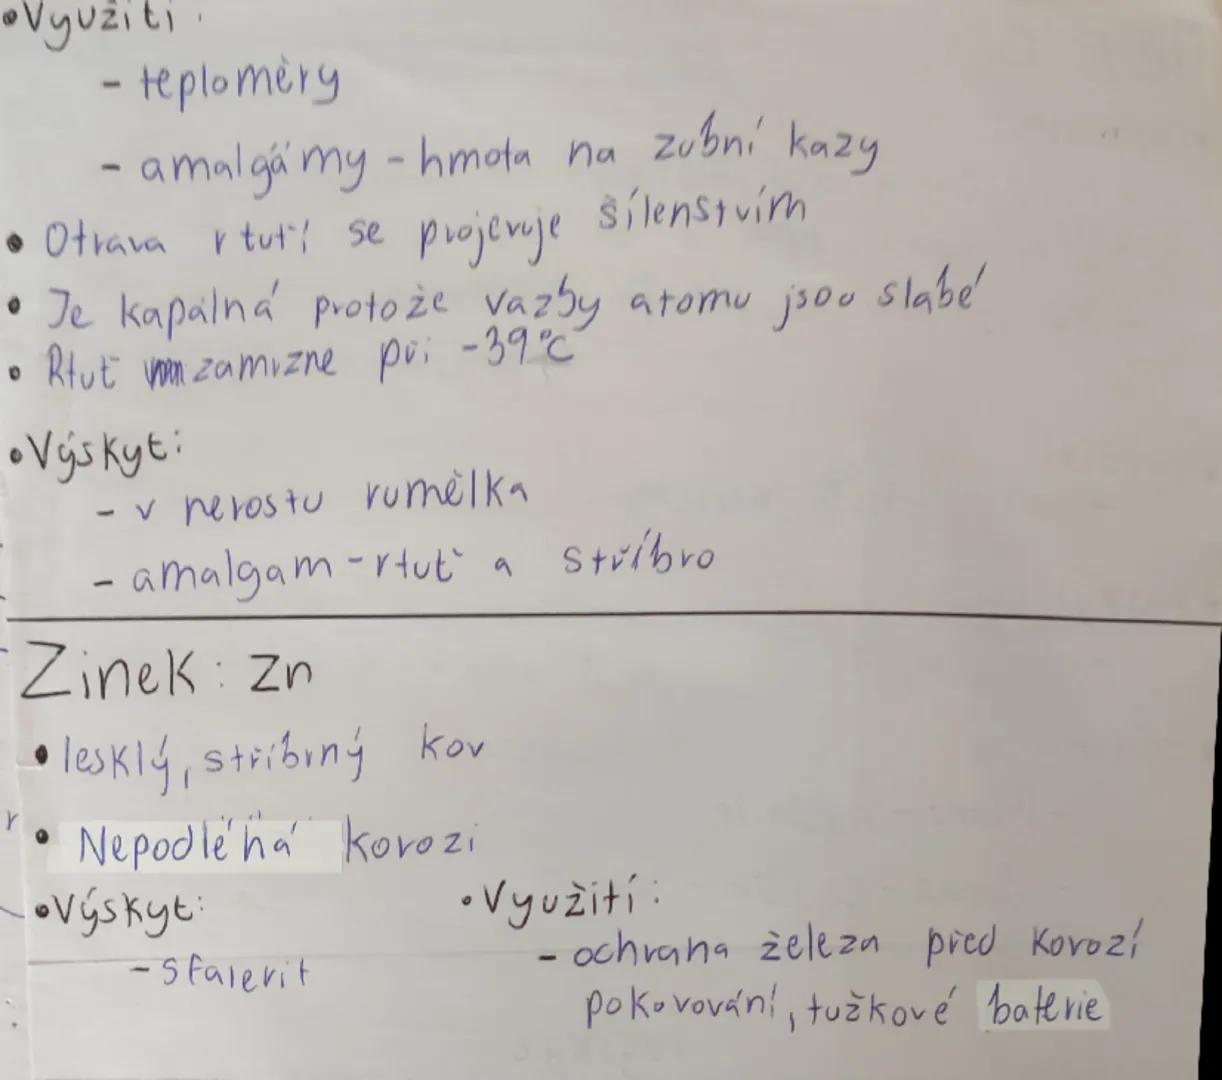 •Využití:
- teploměry
- amalgámy - hmota na zubní kazy
• Otrava rtutí se projevuje šílenstvím
• Je kapalná protože vazby atomu jsou slabé
• Rtuť zamrzne při -39°C
•Výskyt:
- v nerostu rumělka
- amalgam - rtuť a stříbro
Zinek: Zn
• lesklý, stříbrný kov
• Nepodléhá korozi
•Výskyt:
- sfalerit
•Využití:
- ochrana železa před korozí
pokovování, tužkové baterie